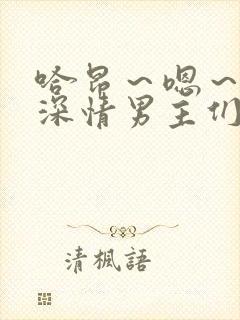 哈昂～嗯～
深情男主们
清楓語